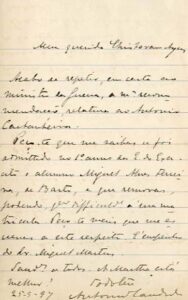 Meu querido Christovam Ayres
Acabo de repetir, em carta ao
ministro da Guerra, a mª recom
mendação, relativa ao Antonio
Castanheira.
Peço-te que me saibas se foi
admittido no 1º anno da E. do Exer
cito o alumno Miguel Alves
de Basto, e que removas,
podendo, qq difficuldade á sua ma
tricula. Peço-te mais que me es
crevas a este respeito. É empenho
do Dr. Miguel Martins.
Saudes a todos. A Martha está
melhor!
25-5-97 Antonio Candido